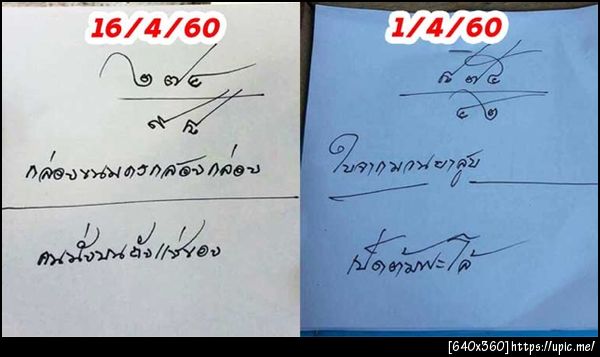 16/4/60
๒ ๗ ๔
๙ ๕
กล่องขนมตรงกล้องกล่อง
คนนั่งบนถังแช่ของ
1/4/60
๕ ๗ ๕
๔ ๒
ใบจากมวนยาสูบ
เป็ดต้มพะโล้
[640x360]https://upic.me/